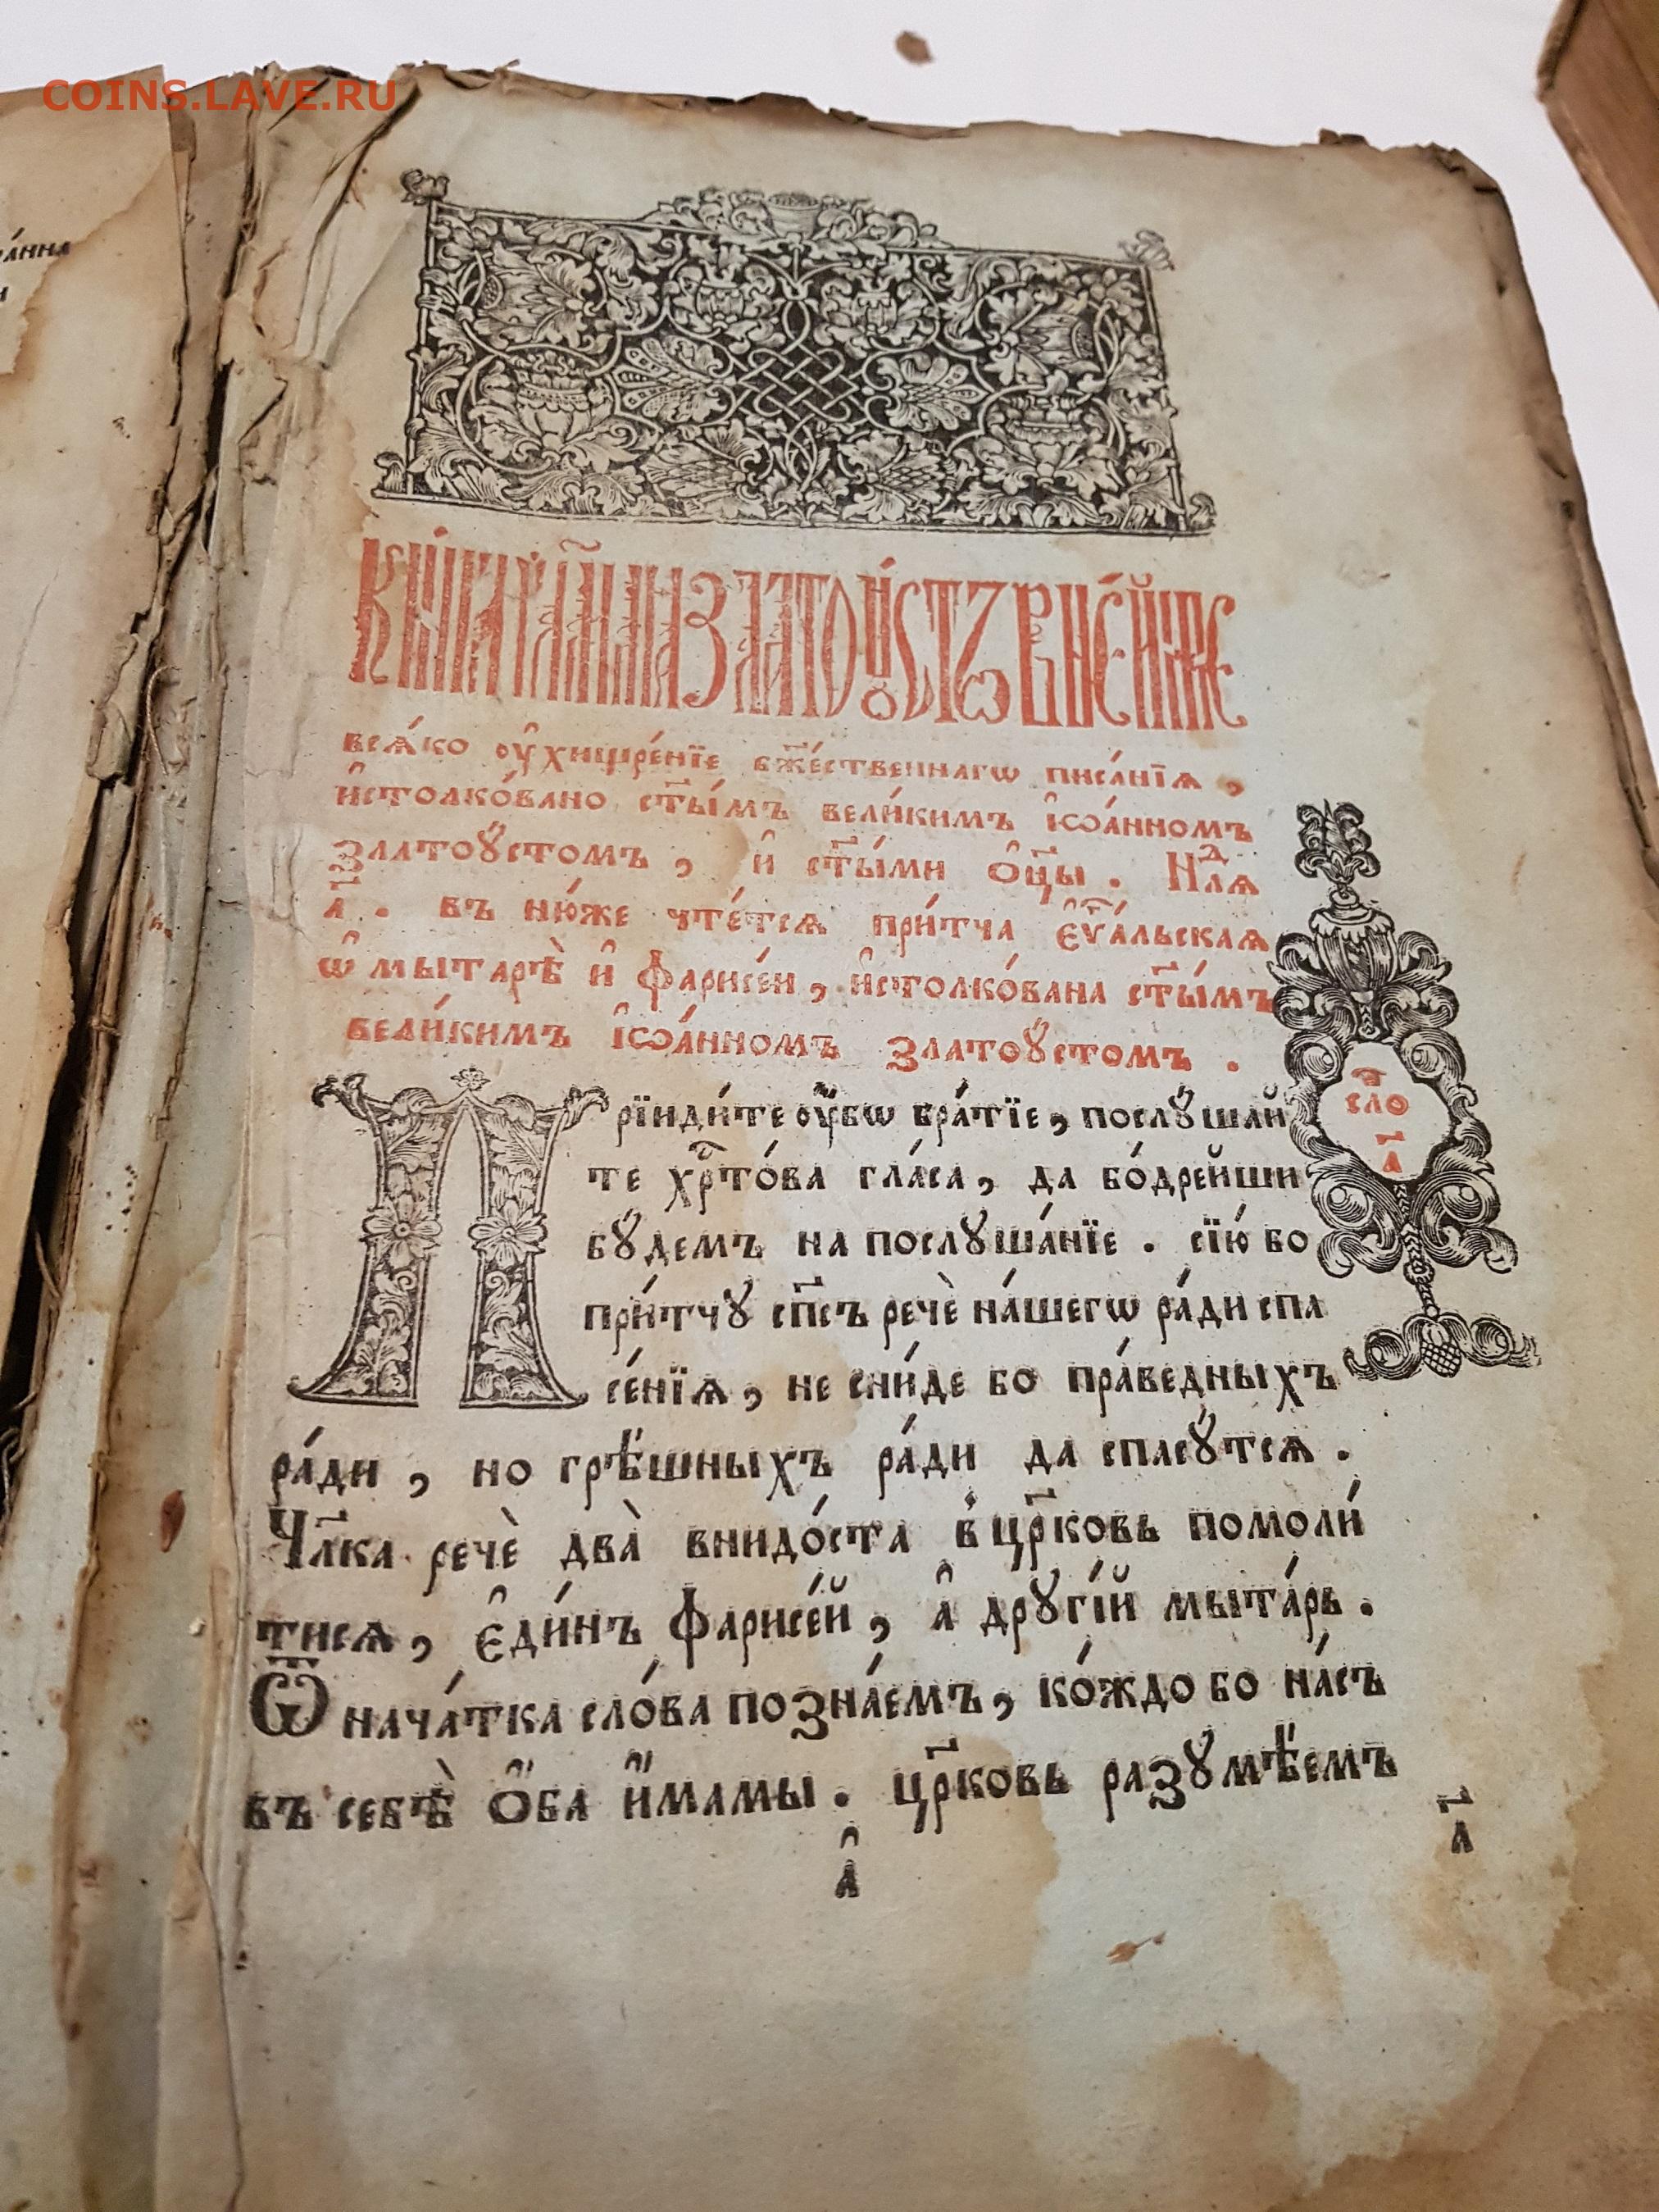 COINS.LAVE.RU
а́нна
и
Кни́га гл҃емаѧ Златоꙋ́стъ в не́й же
всѧ́ко ᲂу҆хищре́нїе бж҃е́ственнагѡ писа́нїѧ,
и҆столко́вано ст҃ы́мъ вели́кимъ і҆ѡа́нномъ
златоꙋ́стомъ, и҆ ст҃ы́ми ѻ҆ц҃ы. Нⷣлѧ
а҃. въ ню́же чте́тсѧ при́тча є҆ѵⷢ҇а́льскаѧ
ѡ҆ мытарѣ̀ и҆ фарисе́и, и҆столко́вана ст҃ы́мъ
вели́кимъ і҆ѡа́нномъ златоꙋ́стомъ.
Прїиди́те ᲂу҆́бѡ бра́тїе, послꙋ́шай
те хрⷭ҇то́ва гла́са, да бо́дрейши
бꙋ́демъ на послꙋша́нїе. сїю́ бо
при́тчꙋ сп҃съ речѐ на́шегѡ ра́ди спа
се́нїѧ, не сни́де бо пра́ведныхъ
ра́ди, но грѣ́шныхъ ра́ди да спасꙋ́тсѧ.
Чл҃ка речѐ два̀ внидо́ста в̾ цр҃ковь помоли́
тисѧ, є҆ди́нъ фарисе́й, а҆ дрꙋгі́й мыта́рь.
Ѿ нача́тка сло́ва позна́емъ, ко́ждо бо на́съ
въ себѣ̀ ѻ҆́ба и҆́мамы. цр҃ковь разꙋмѣ́емъ
сло
а҃
а҆
а҃